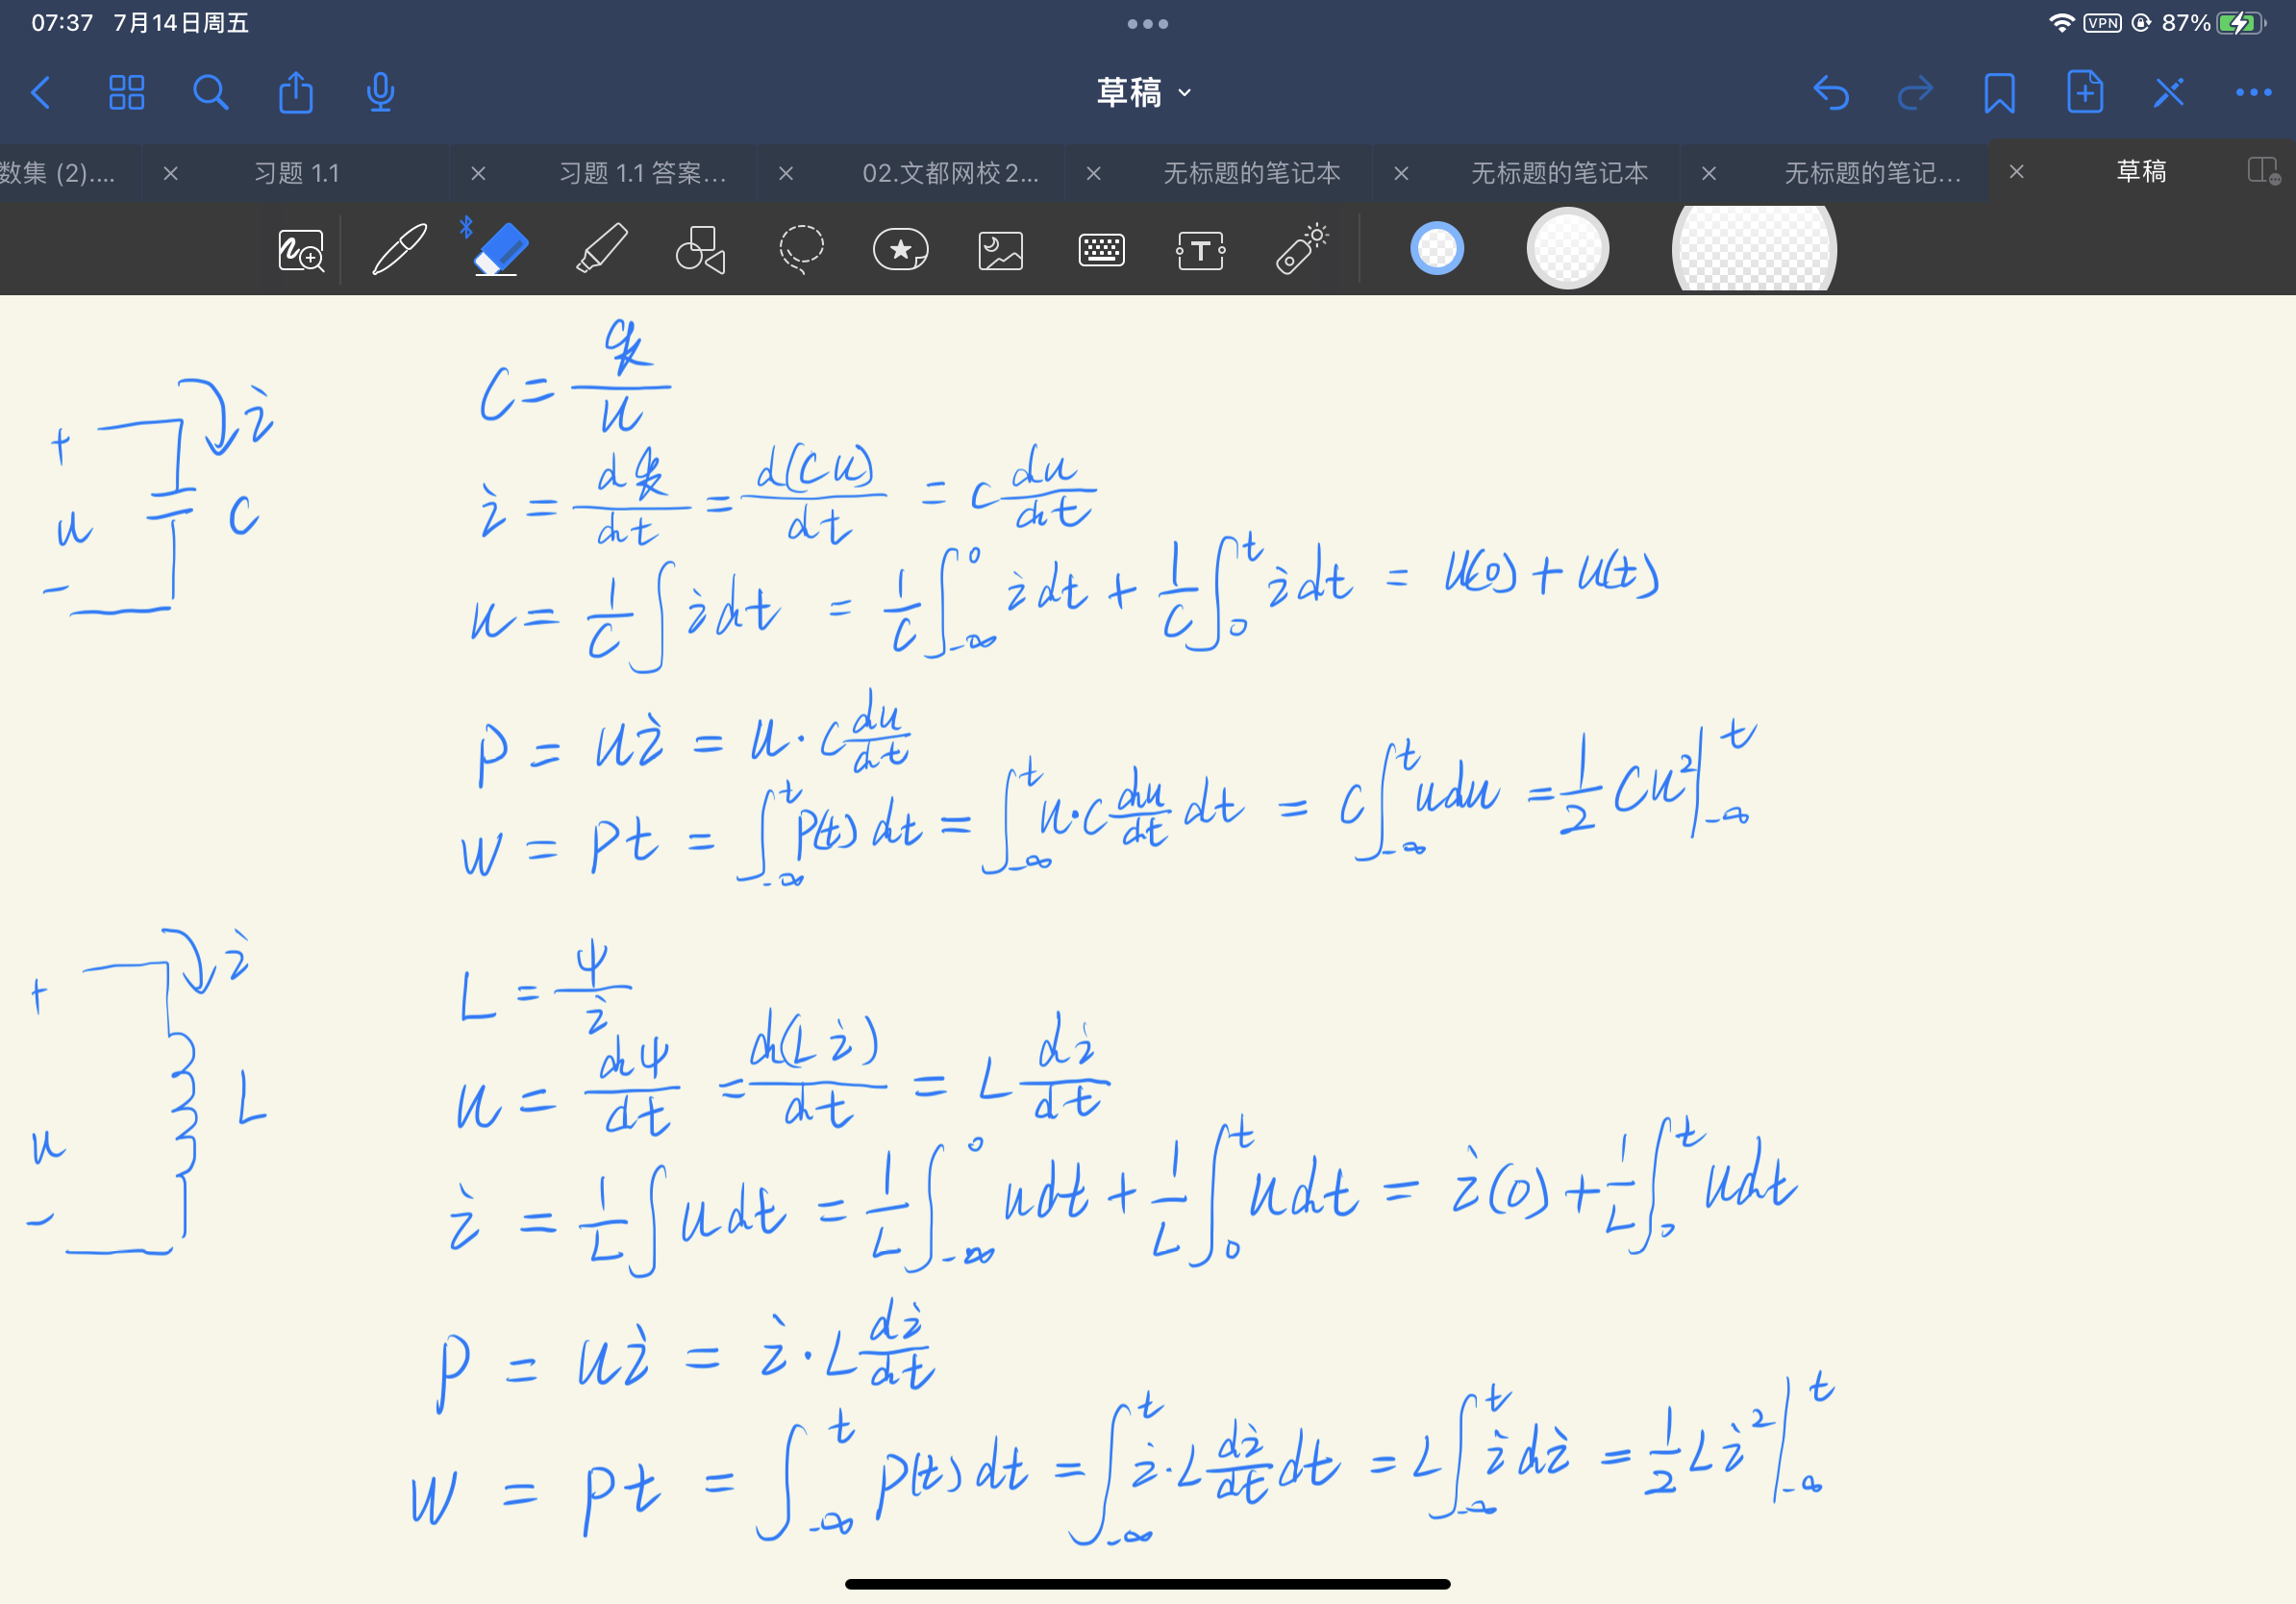 07:37 7月14日周五
VPN 87%
草稿
数集 (2)....
习题 1.1
习题 1.1 答案...
02.文都网校 2...
无标题的笔记本
无标题的笔记本
无标题的笔记...
草稿
T
C = q/u
+ i
u C
−
i = dq/dt = d(Cu)/dt = C du/dt
u = 1/C ∫ i dt = 1/C ∫_{-∞}^{0} i dt + 1/C ∫_{0}^{t} i dt = u(0) + u(t)
P = ui = u · C du/dt
W = Pt = ∫_{-∞}^{t} P(t) dt = ∫_{-∞}^{t} u · C du/dt dt = C ∫_{-∞}^{t} u du = 1/2 Cu² |_{-∞}^{t}
+ i
L
u
−
L = ψ/i
u = dψ/dt = d(Li)/dt = L di/dt
i = 1/L ∫ u dt = 1/L ∫_{-∞}^{0} u dt + 1/L ∫_{0}^{t} u dt = i(0) + 1/L ∫_{0}^{t} u dt
P = ui = i · L di/dt
W = Pt = ∫_{-∞}^{t} P(t) dt = ∫_{-∞}^{t} i · L di/dt dt = L ∫_{-∞}^{t} i di = 1/2 Li² |_{-∞}^{t}